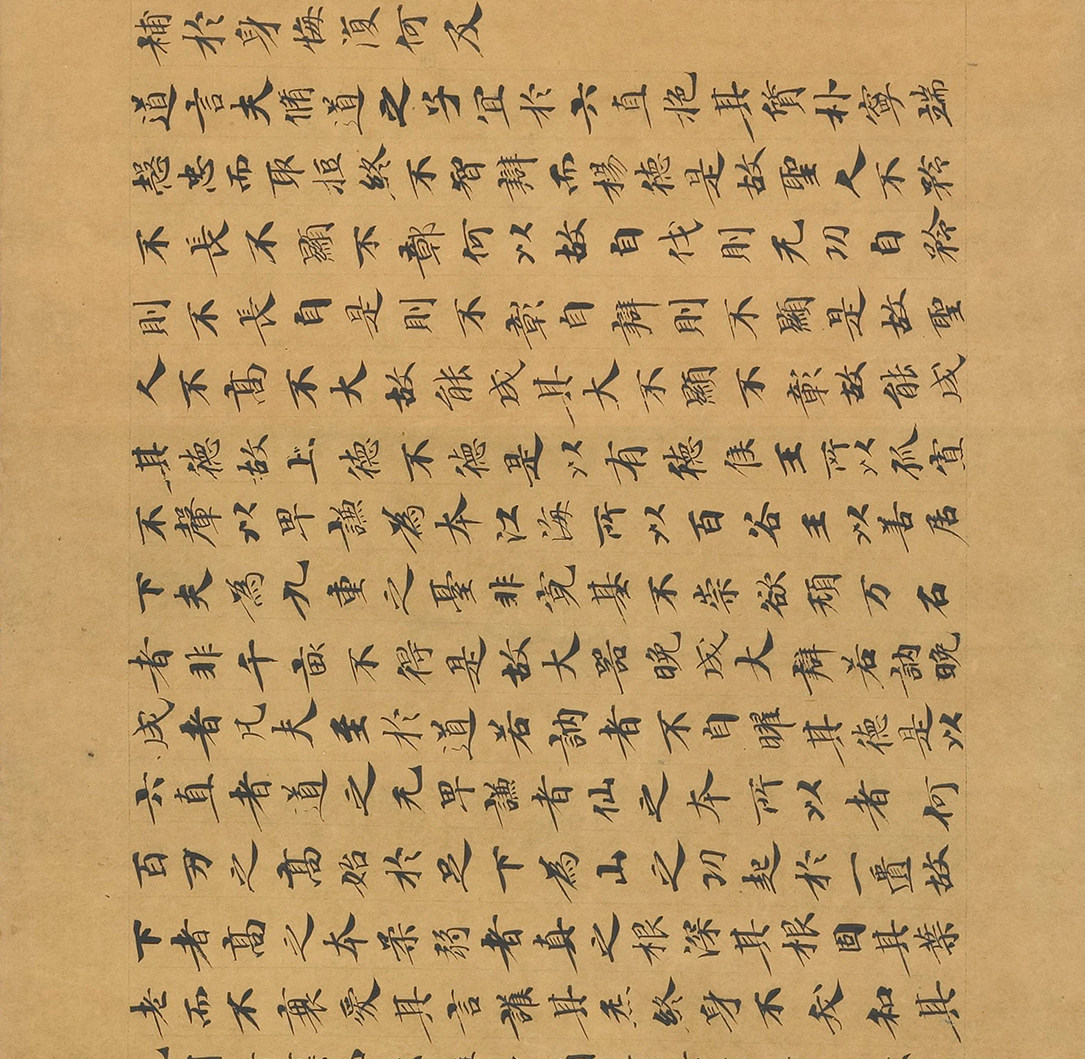 補於身悔復何及
道言夫脩道之子宜於公直抱其質朴寧端
愨忠而取拒終不智辯而楊德是故聖人不矜
不長不顯不彰何以故自伐則无功自矜
則不長自是則不彰自辯則不顯是故聖
人不高不大故能成其大不顯不彰故能成
其德故上德不德是以有德侯王所以孤寡
不以卑謙為本江海所以百谷王以善居
下夫為九重之臺非寬基不崇欲万石
者非千畝不得是故大器晚成大辯若訥晚
成者凡夫至於道若訥者不自曜其德是以
公直者道之元卑謙者仙之本所以者何
百刃之高始於足下為山之功起於一匱故
下者高之本柔弱者真之根深其根固其葉
老而不衰愛其言護其炁終身不失和其